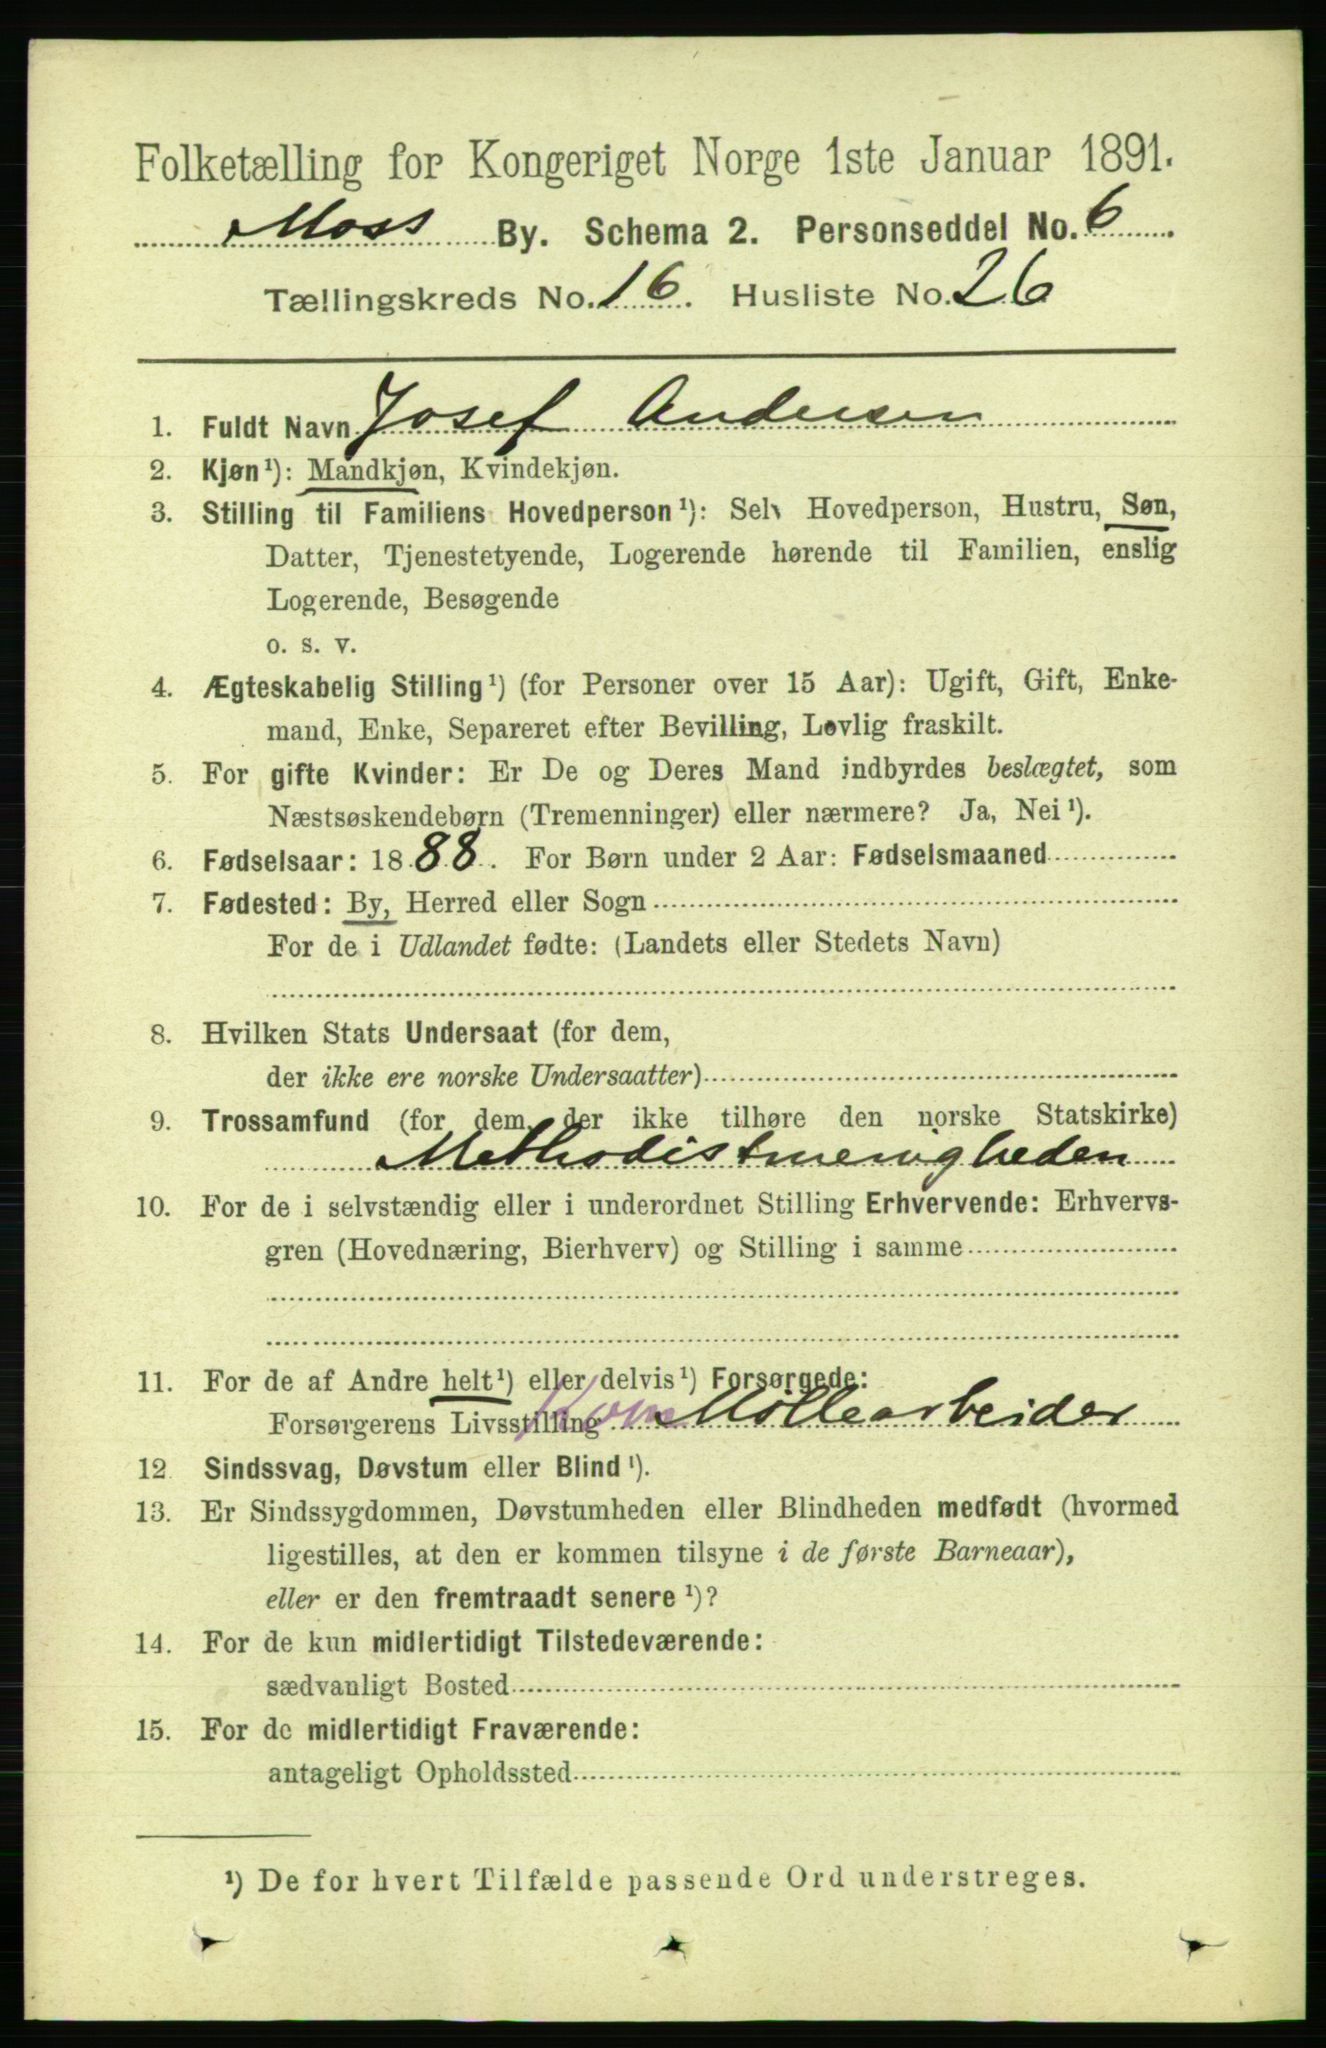 Folketælling for Kongeriget Norge 1ste Januar 1891.
Moss By. Schema 2. Personseddel No. 6
Tællingskreds No. 16. Husliste No. 26
1. Fuldt Navn Josef Andersen
2. Kjøn¹): Mandkjøn, Kvindekjøn.
3. Stilling til Familiens Hovedperson¹): Selv Hovedperson, Hustru, Søn,
Datter, Tjenestetyende, Logerende hørende til Familien, enslig
Logerende, Besøgende
o. s. v.
4. Ægteskabelig Stilling¹) (for Personer over 15 Aar): Ugift, Gift, Enke-
mand, Enke, Separeret efter Bevilling, Lovlig fraskilt.
5. For gifte Kvinder: Er De og Deres Mand indbyrdes beslægtet, som
Næstsøskendebørn (Tremenninger) eller nærmere? Ja, Nei¹).
6. Fødselsaar: 1888. For Børn under 2 Aar: Fødselsmaaned
7. Fødested: By, Herred eller Sogn
For de i Udlandet fødte: (Landets eller Stedets Navn)
8. Hvilken Stats Undersaat (for dem,
der ikke ere norske Undersaatter)
9. Trossamfund (for dem, der ikke tilhøre den norske Statskirke)
Methodistmenigheden
10. For de i selvstændig eller i underordnet Stilling Erhvervende: Erhvervs-
gren (Hovednæring, Bierhverv) og Stilling i samme
11. For de af Andre helt¹) eller delvis¹) Forsørgede:
Forsørgerens Livsstilling Korn Møllearbeider
12. Sindssvag, Døvstum eller Blind¹).
13. Er Sindssygdommen, Døvstumheden eller Blindheden medfødt (hvormed
ligestilles, at den er kommen tilsyne i de første Barneaar),
eller er den fremtraadt senere¹)?
14. For de kun midlertidigt Tilstedeværende:
sædvanligt Bosted
15. For de midlertidigt Fraværende:
antageligt Opholdssted
¹) De for hvert Tilfælde passende Ord understreges.